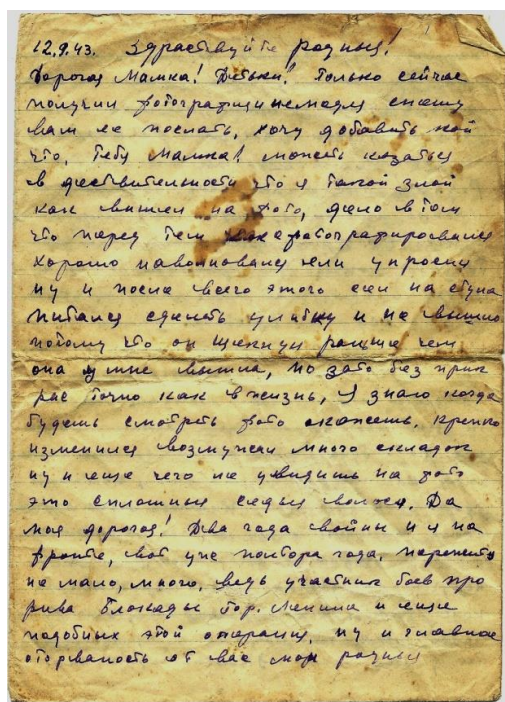 12.9.43. Здраствуйте родные!
Дорогая Мамка! Детьки! Только сейчас
получил фотографии немедля спешу
вам ее послать, хочу добавить кой
что, Тебе Мамка! может казаться
в деств­ительности что я такой злой
как вышел на фото, дело в том
что перед тем как фотографировался
хорошо наволновался ели упросил
ну и после всего этого сел на стул а
питался сделать улибку и не вышло
потому что он щелкнул раньше чем
она у мне вышла, но зато без прик
рас точно как в жизнь, Я знаю когда
будешь смотреть фото скажешь, крепко
изменился возмужал много складок
ну и еще чего не увидишь на фото
это сплошные седые волоса. Да
моя дорогая! Два года войны и я на
фронте, вот уже полтора года, пережито
не мало, много, ведь участник боев про
рива Блокады Гор. Ленина и еще
подобных этой операций, ну и главное
оторваность от вас мои родные